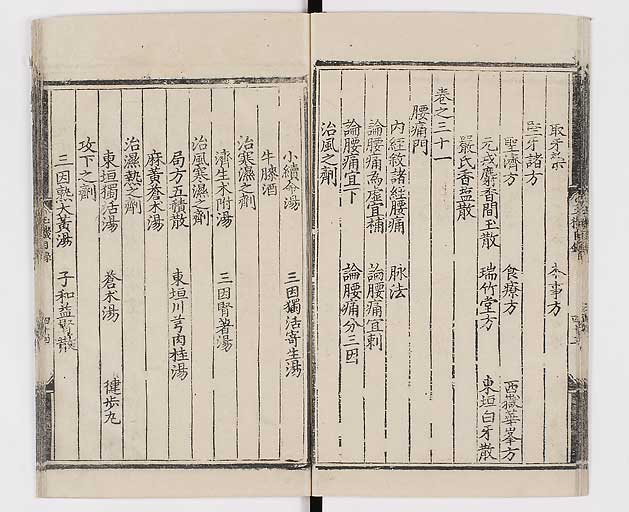 取牙 本事方
牙諸方
聖濟方 食療方 西嶽華峯方
元戎麝香間玉散 瑞竹堂方 東垣白牙散
嚴氏香鹽散
卷之三十一
腰痛門
內經敘諸經腰痛 脉法
論腰痛為虛宜補 論腰痛宜刺
論腰痛宜下 論腰痛分三因
治風之劑
小續命湯 三因獨活寄生湯
牛膝酒
治寒濕之劑
濟生术附湯 三因腎著湯
治風寒濕之劑
局方五積散 東垣川芎肉桂湯
麻黃蒼朮湯
治濕熱之劑
東垣獨活湯 蒼朮湯 健步丸
攻下之劑
三因熟大黃湯 子和益腎散